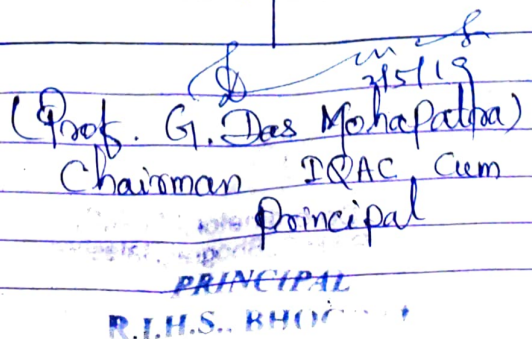 3/5/19
(Prof. G. Das Mohapatra)
Chairman IQAC Cum
Principal
PRINCIPAL
R.I.H.S..